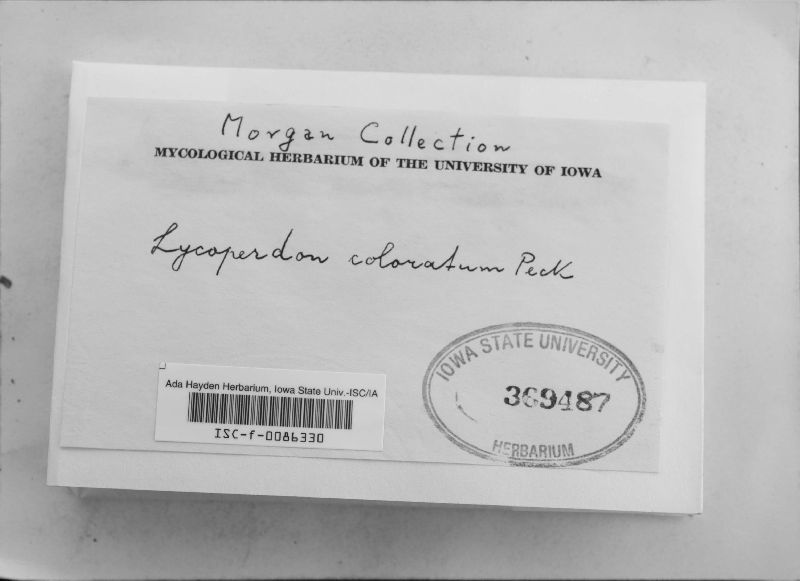 Morgan Collection
MYCOLOGICAL HERBARIUM OF THE UNIVERSITY OF IOWA
Lycoperdon coloratum Peck
IOWA STATE UNIVERSITY
369487
HERBARIUM
Ada Hayden Herbarium, Iowa State Univ.-ISC/IA
ISC-f-0086330